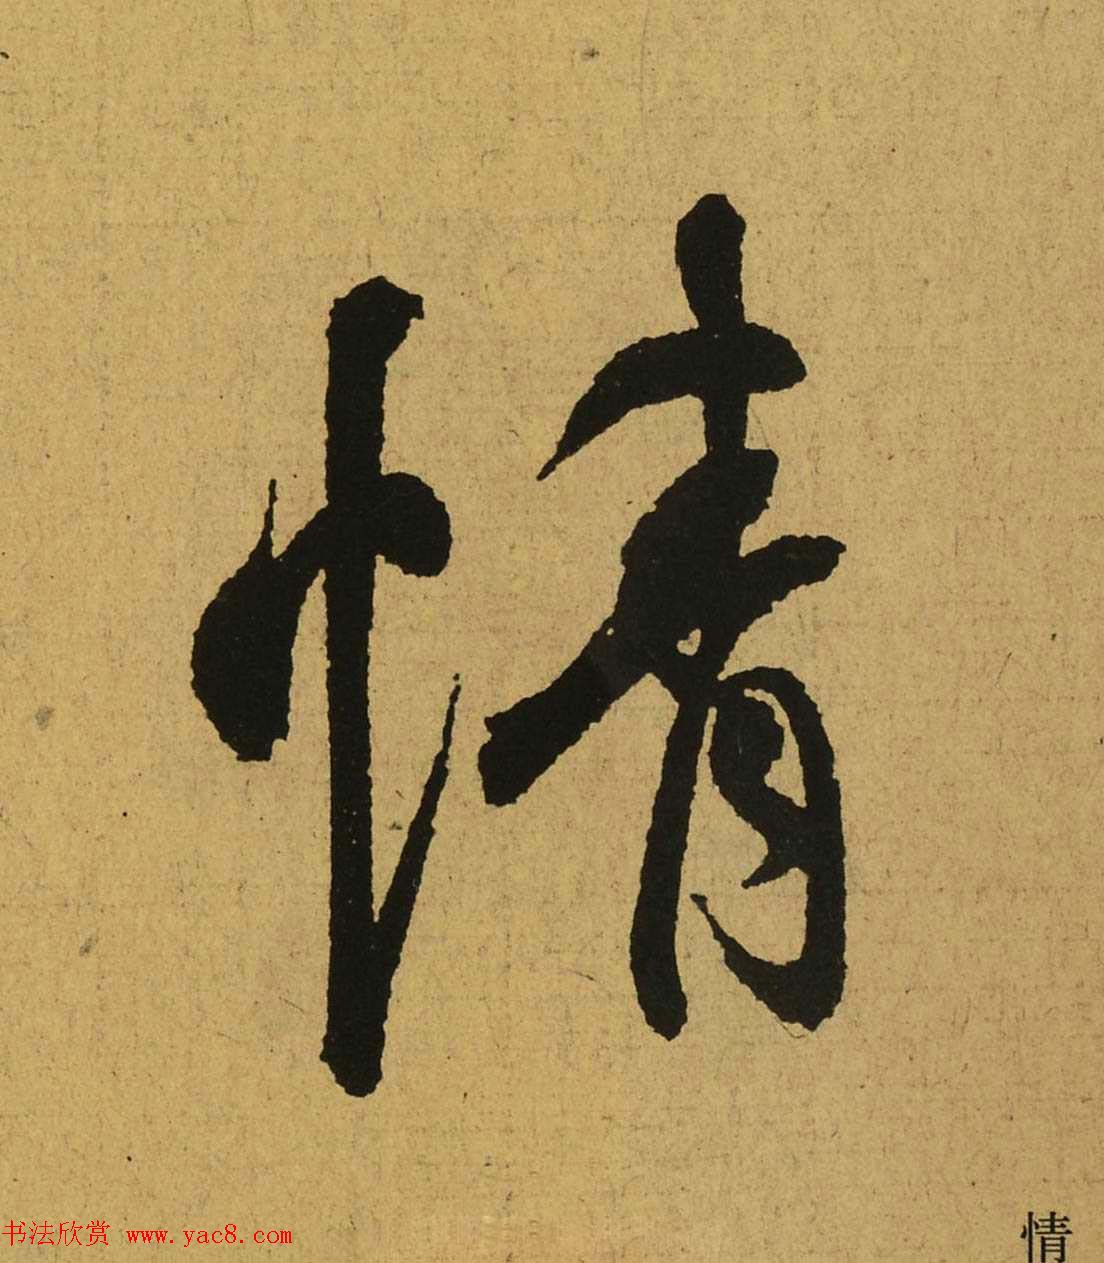 情
书法欣赏 www.yac8.com
情